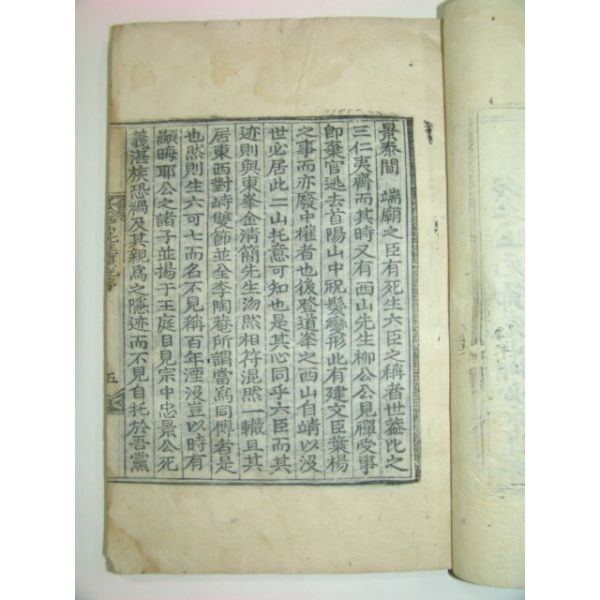 景泰間　端廟之臣有死生六臣之稱者世蓋比之
三仁夷齊而其時又有西山先生柳公公見禪受事
卽棄官逃去首陽山中祝髮變形此有建文臣葉楊
之事而亦廢中權者也後登道峯之西山自靖以沒
世必居此二山托意可知也是其心同乎六臣而其
迹則與東峯金淸簡先生沕然相符混然一轍且其
居東西對峙雙節並全李陶菴所謂當爲同傳者是
也然則生六可七而名不見稱百年湮沒豈以時有
顯晦耶公之諸子並揚于王庭目見宗中忠景公死
義湛族恐禍及其親爲之隱迹而不見自托於吾黨
五